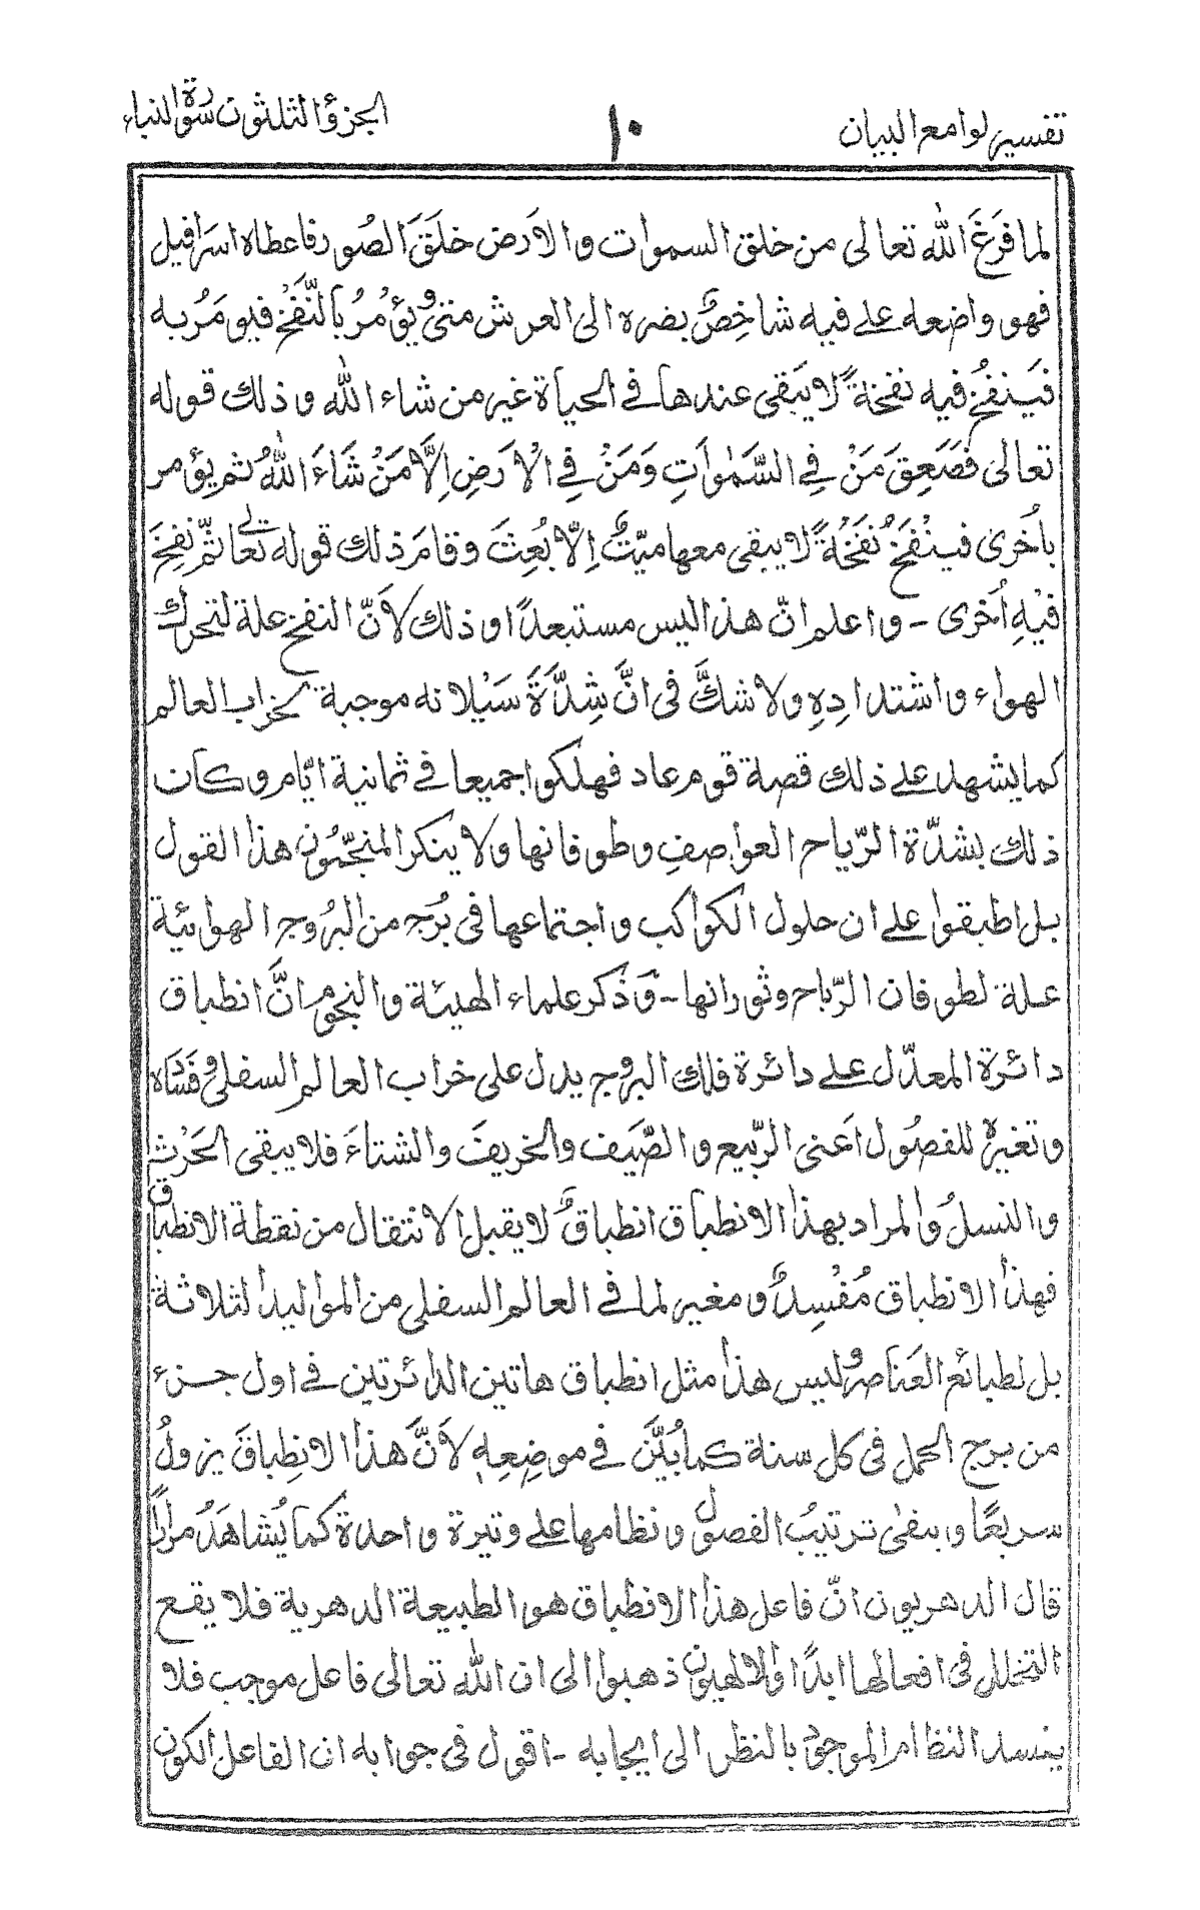 تفسير لوامع البيان
١٠
الجزؤ الثلثون سورة النباء
لما فَرَغَ الله تعالى من خلق السموات والارض خلَقَ الصُور فاعطاه اسرافيل
فهو واضعه على فيه شاخِصٌ بصره الى العرش متىٰ يُؤمُرُ بالنَّفخ فيومَرُ به
فيَنفخُ فيه نفخةً لا يَبقى عندها فى الحياة غير من شاء الله وذلك قوله
تعالى فَصَعِقَ مَنْ فِي السَّمٰواتِ وَمَنْ فِي الْاَرضِ اِلَّا مَنْ شَاءَ اللهُ ثم يؤمر
باُخرى فينْفَخُ نُفخَةً لا يبقى معها ميّتٌ اِلّا بُعِثَ وقامَ ذلك قوله تعالى ثمّ نفِخَ
فيْهِ اُخرى - واعلم انّ هذا ليس مستبعدًا وذلك لاَنّ النفخ علة لتحرك
الهواء واشتدادِهِ ولا شكَّ فى انَّ شِدَّةَ سَيْلانه موجبة لخراب العالم
كما يشهد على ذلك قصة قوم عاد فهلكوا جميعا فى ثمانية ايّام وكان
ذلك بشدّة الرّياح العواصفِ وطوفانها ولا ينكر المنجّمون هذا القول
بل اطبقوا على ان حلول الكواكب واجتماعها فى بُرج من البُروج الهوائية
علة لطوفان الرّياح وثورانها - وَذكر علماء الهيئة والنجوم انَّ انطباق
دائرة المعدّل على دائرة فلك البروج يدل على خراب العالم السفلى وفسَاده
وتغيره للفصُول اَعنى الرّبيع والصّيف والخريفَ والشتاءَ فلا يبقى الحَرْث
والنسلُ والمراد بهذا الانطباق انطباقٌ لا يقبل الانتقال من نقطة الانطباق
فهذا الانطباق مُفْسِدٌ ومغير لما فى العالم السفلى من المواليد الثلاثة
بل لطبائع العَناصر وليس هذا مثل انطباق هاتين الدائرتين فى اول جزء
من برج الحمل فى كل سنة كما بُيِّن فى موضِعِهٖ لاَنَّ هذا الانِطباقَ يزولُ
سريعًا ويبقىٰ ترتيبُ الفصول ونظامها على وتيرة واحدة كما يُشاهَدُ مرارًا
قال الدهريون انّ فاعل هذا الانطباق هو الطبيعة الدهرية فلا يقع
التخلل فى افعالها ابدًا والالهيون ذهبوا الى ان الله تعالى فاعل موجب فلا
يفسد النظام الموجود بالنظر الى ايجابه - اقول فى جوابه ان الفاعل الكون